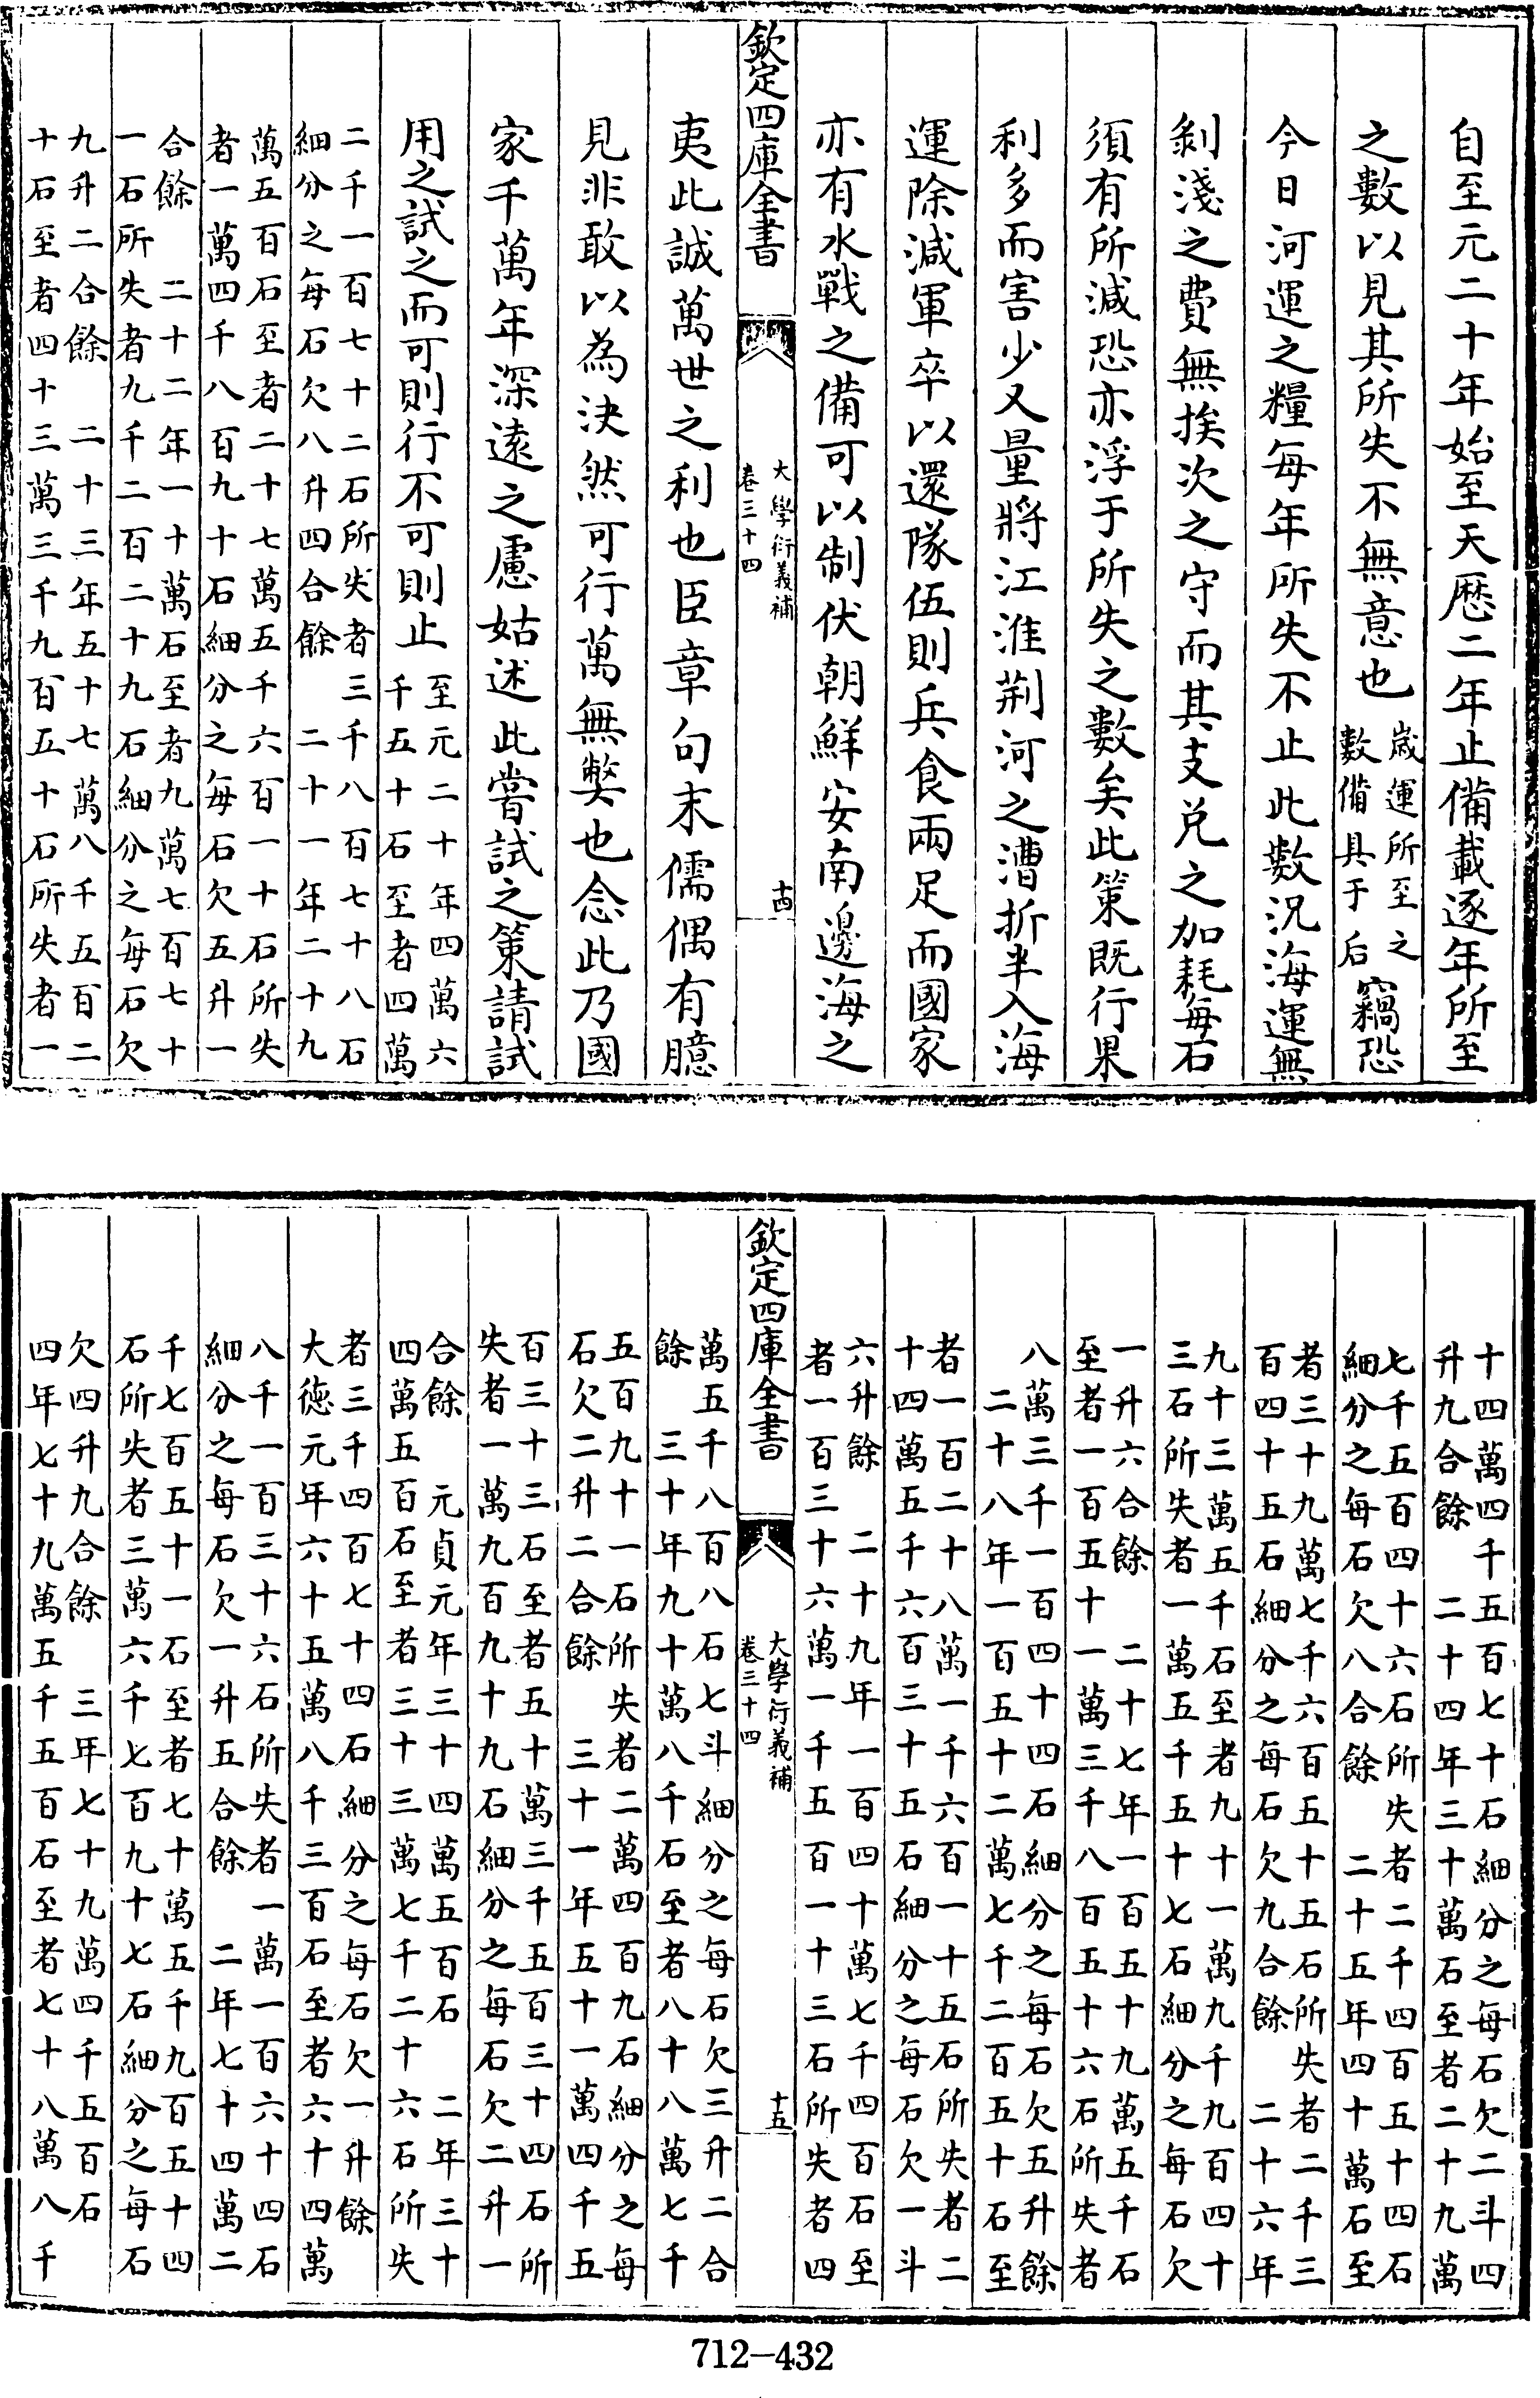 自至元二十年始至天厯二年止備載逐年所至
之數以見其所失不無意也
歲運所至之
數備具于后
竊恐
今日河運之糧每年所失不止此數況海運無
剝淺之費無挨次之守而其支兌之加耗每石
須有所減恐亦浮于所失之數矣此策既行果
利多而害少又量將江淮荆河之漕折半入海
運除減軍卒以還隊伍則兵食兩足而國家
亦有水戰之備可以制伏朝鮮安南邊海之
欽定四庫全書
大學衍義補
卷三十四
十四
夷此誠萬世之利也臣章句末儒偶有臆
見非敢以為決然可行萬無弊也念此乃國
家千萬年深遠之慮姑述此嘗試之策請試
用之試之而可則行不可則止
至元二十年四萬六
千五十石至者四萬
二千一百七十二石所失者三千八百七十八石
細分之每石欠八升四合餘 二十一年二十九
萬五百石至者二十七萬五千六百一十石所失
者一萬四千八百九十石細分之每石欠五升一
合餘 二十二年一十萬石至者九萬七百七十
一石所失者九千二百二十九石細分之每石欠
九升二合餘 二十三年五十七萬八千五百二
十石至者四十三萬三千九百五十石所失者一
十四萬四千五百七十石細分之每石欠二斗四
升九合餘 二十四年三十萬石至者二十九萬
七千五百四十六石所失者二千四百五十四石
細分之每石欠八合餘 二十五年四十萬石至
者三十九萬七千六百五十五石所失者二千三
百四十五石細分之每石欠九合餘 二十六年
九十三萬五千石至者九十一萬九千九百四十
三石所失者一萬五千五十七石細分之每石欠
一升六合餘 二十七年一百五十九萬五千石
至者一百五十一萬三千八百五十六石所失者
八萬三千一百四十四石細分之每石欠五升餘
二十八年一百五十二萬七千二百五十石至
者一百二十八萬一千六百一十五石所失者二
十四萬五千六百三十五石細分之每石欠一斗
六升餘 二十九年一百四十萬七千四百石至
者一百三十六萬一千五百一十三石所失者四
欽定四庫全書
大學衍義補
卷三十四
十五
萬五千八百八石七斗細分之每石欠三升二合
餘 三十年九十萬八千石至者八十八萬七千
五百九十一石所失者二萬四百九石細分之每
石欠二升二合餘 三十一年五十一萬四千五
百三十三石至者五十萬三千五百三十四石所
失者一萬九百九十九石細分之每石欠二升一
合餘 元貞元年三十四萬五百石 二年三十
四萬五百石至者三十三萬七千二十六石所失
者三千四百七十四石細分之每石欠一升餘
大徳元年六十五萬八千三百石至者六十四萬
八千一百三十六石所失者一萬一百六十四石
細分之每石欠一升五合餘 二年七十四萬二
千七百五十一石至者七十萬五千九百五十四
石所失者三萬六千七百九十七石細分之每石
欠四升九合餘 三年七十九萬四千五百石
四年七十九萬五千五百石至者七十八萬八千
712-432